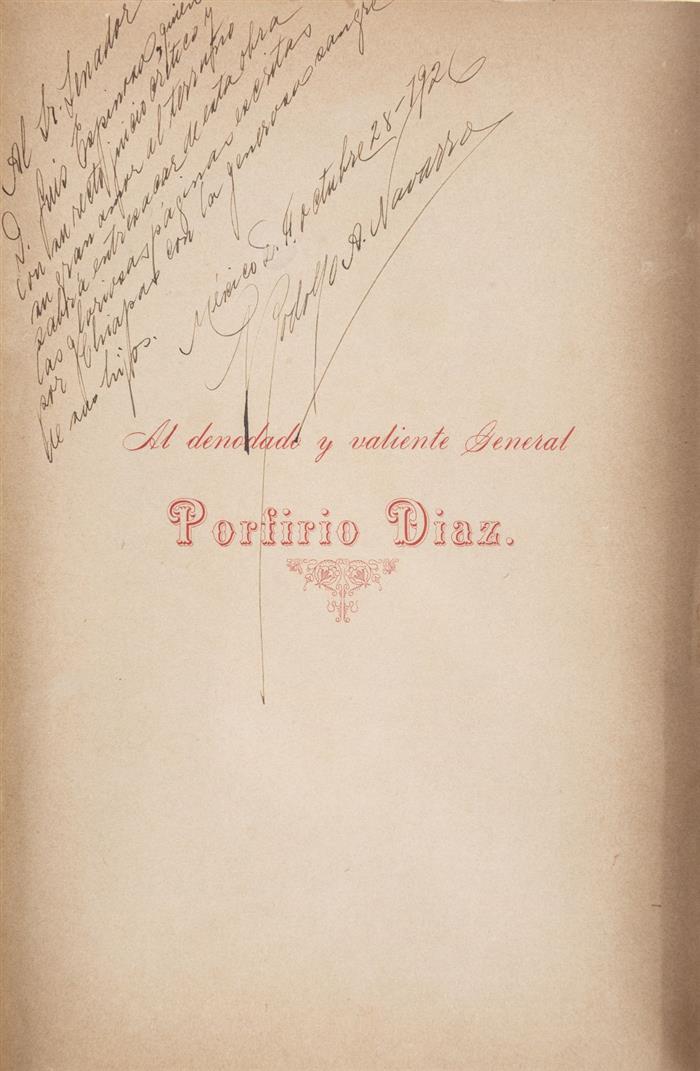 Al Sr. Senador
D. Luis Espinosa, quien
con su recto juicio crítico y
su gran amor al terruño
sabrá entresacar de esta obra
las gloriosas páginas escritas
por Chiapas con la generosa sangre
de sus hijos.
México D. F. octubre 28-1926
Rodolfo A. Navarro
Al denodado y valiente General
Porfirio Diaz.